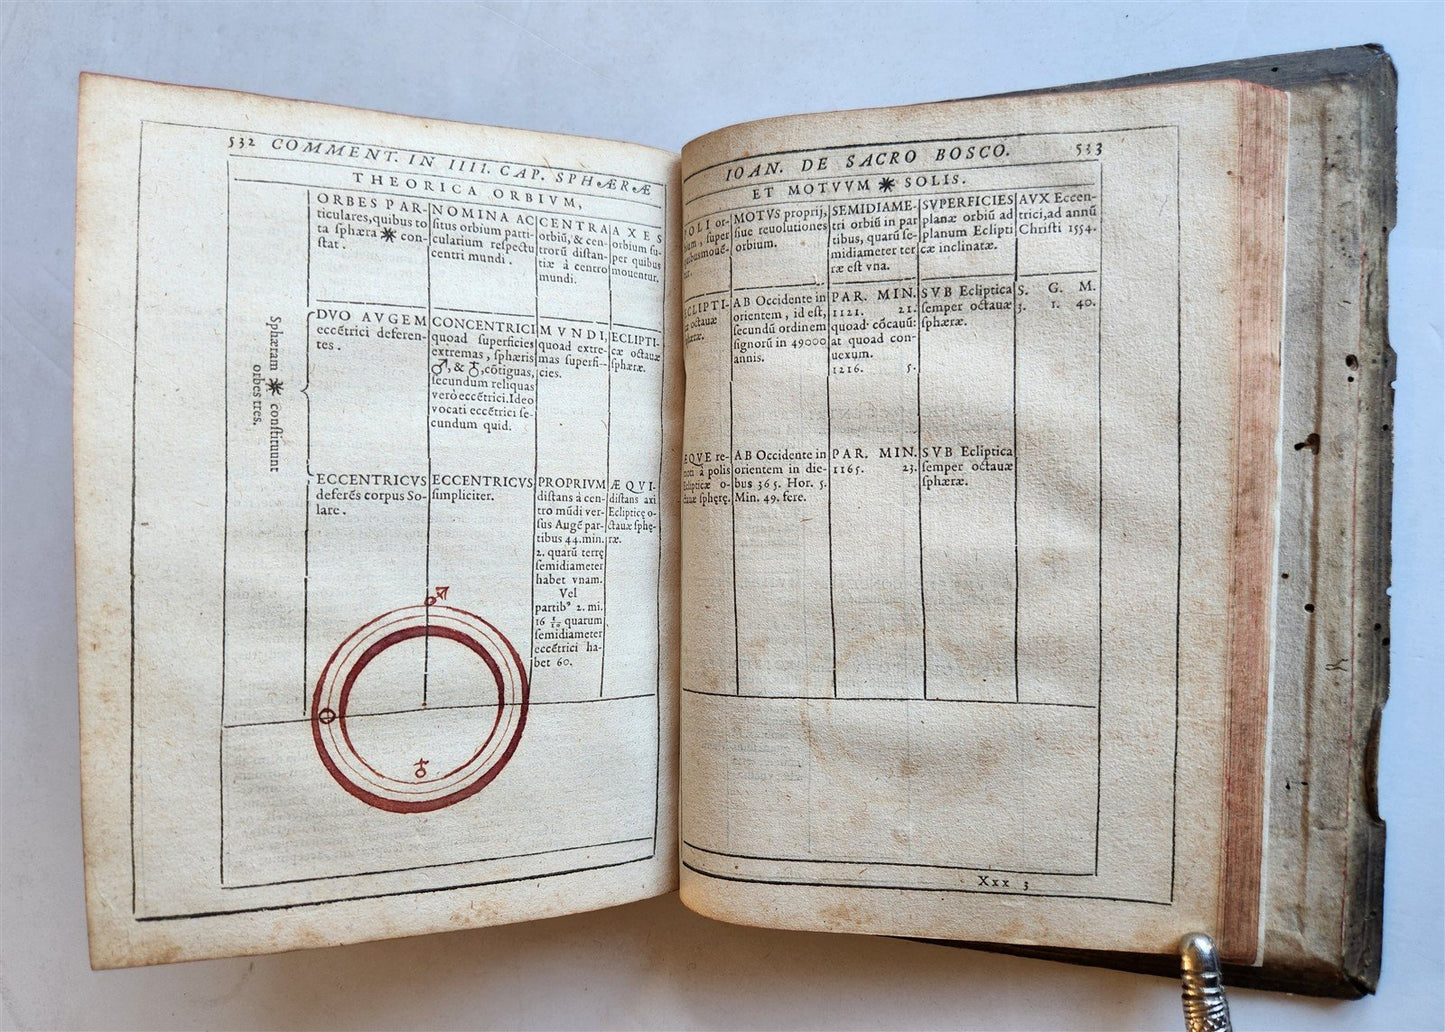 532 COMMENT. IN IIII. CAP. SPHÆRÆ
THEORICA ORBIVM,
ORBES PAR-
ticulares, quibus to
ta sphæra ☀ con-
stat.
NOMINA AC
situs orbium parti
cularium respectu
centri mundi.
CENTRA
orbiũ, & cen-
trorũ distan-
tiæ à centro
mundi.
AXES
orbium su-
per quibus
mouentur.
Sphæram ☀ constituunt
orbes tres.
DVO AVGEM
eccẽtrici deferen-
tes.
CONCENTRICI
quoad superficies
extremas, sphæris
♂, & ♁, cõtiguas,
secundum reliquas
verò eccẽtrici. Ideo
vocati eccẽtrici se-
cundum quid.
MVNDI,
quoad extre-
mas superfi-
cies.
ECLIPTI-
cæ octauæ
sphæræ.
ECCENTRICVS
deferẽs corpus So-
lare.
ECCENTRICVS
simpliciter.
PROPRIVM
distans à cen-
tro mũdi ver-
sus Augẽ par-
tibus 44. min.
2. quarũ terrę
semidiameter
habet vnam.
Vel
partibꝰ 2. mi.
16 1/10 quarum
semidiameter
eccẽtrici ha-
bet 60.
ÆQVI-
distans axi
Eclipticę o-
ctauæ sphę-
ræ.
♂
♁
IOAN. DE SACRO BOSCO. 533
ET MOTVVM ☀ SOLIS.
POLI or-
bium, super
quibus mouẽ-
tur.
MOTVS proprij,
siue reuolutiones
orbium.
SEMIDIAME-
tri orbiũ in par
tibus, quarũ se-
midiameter ter
ræ est vna.
SVPERFICIES
planæ orbiũ ad
planum Eclipti
cæ inclinatæ.
AVX Eccen-
trici, ad annũ
Christi 1554.
ECLIPTI-
cæ octauæ
sphæræ.
AB Occidente in
orientem, id est,
secundũ ordinem
signorũ in 49000
annis.
PAR. MIN.
1121. 21.
quoad cõcauũ:
at quoad con-
uexum.
1216. 5.
SVB Ecliptica
semper octauæ
sphæræ.
S. G. M.
3. 1. 40.
ÆQVE re-
moti à polis
Eclipticæ o-
ctauæ sphęrę.
AB Occidente in
orientem in die-
bus 365. Hor. 5.
Min. 49. fere.
PAR. MIN.
1165. 23.
SVB Ecliptica
semper octauæ
sphæræ.
Xxx 3